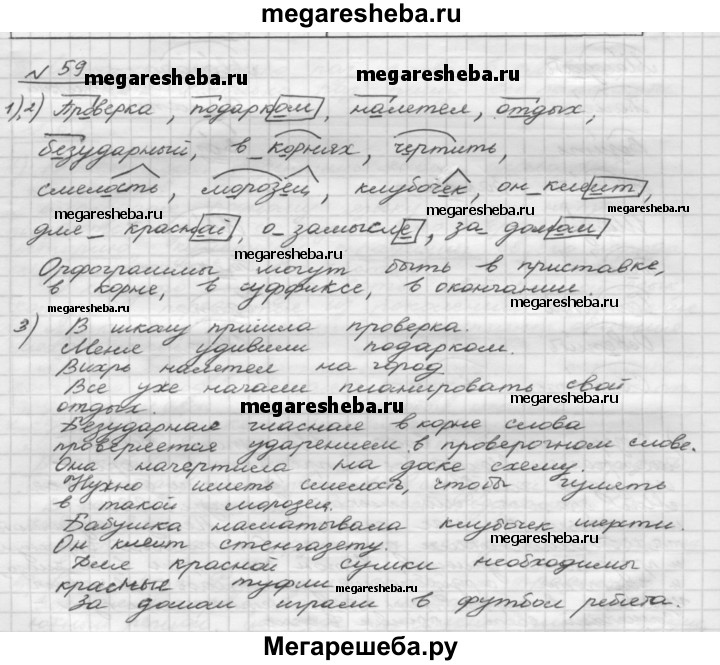 megaresheba.ru
№ 59
megaresheba.ru
megaresheba.ru
1),2) Проверка, подарком, налетел, отдых,
безударный, в корнях, чертить,
смелость, морозец, клубочек, он клеит,
megaresheba.ru
megaresheba.ru
для красной, о замысле, за домом
megaresheba.ru
Орфограммы могут быть в приставке,
в корне, в суффиксе, в окончании.
megaresheba.ru
megaresheba.ru
3) В школу пришла проверка.
Меня удивили подарком.
Вихрь налетел на город.
Все уже начали планировать свой
отдых.
megaresheba.ru
megaresheba.ru
Безударная гласная в корне слова
проверяется ударением в проверочном слове.
Она начертила на доске схему.
Нужно иметь смелость, чтобы гулять
в такой морозец.
Бабушка насматывала клубычек шерсти.
Он клеит стенгазету.
megaresheba.ru
Для красной сумки необходимы
красные туфли
megaresheba.ru
За домом играли в футбол ребята.
Мегарешеба.ру